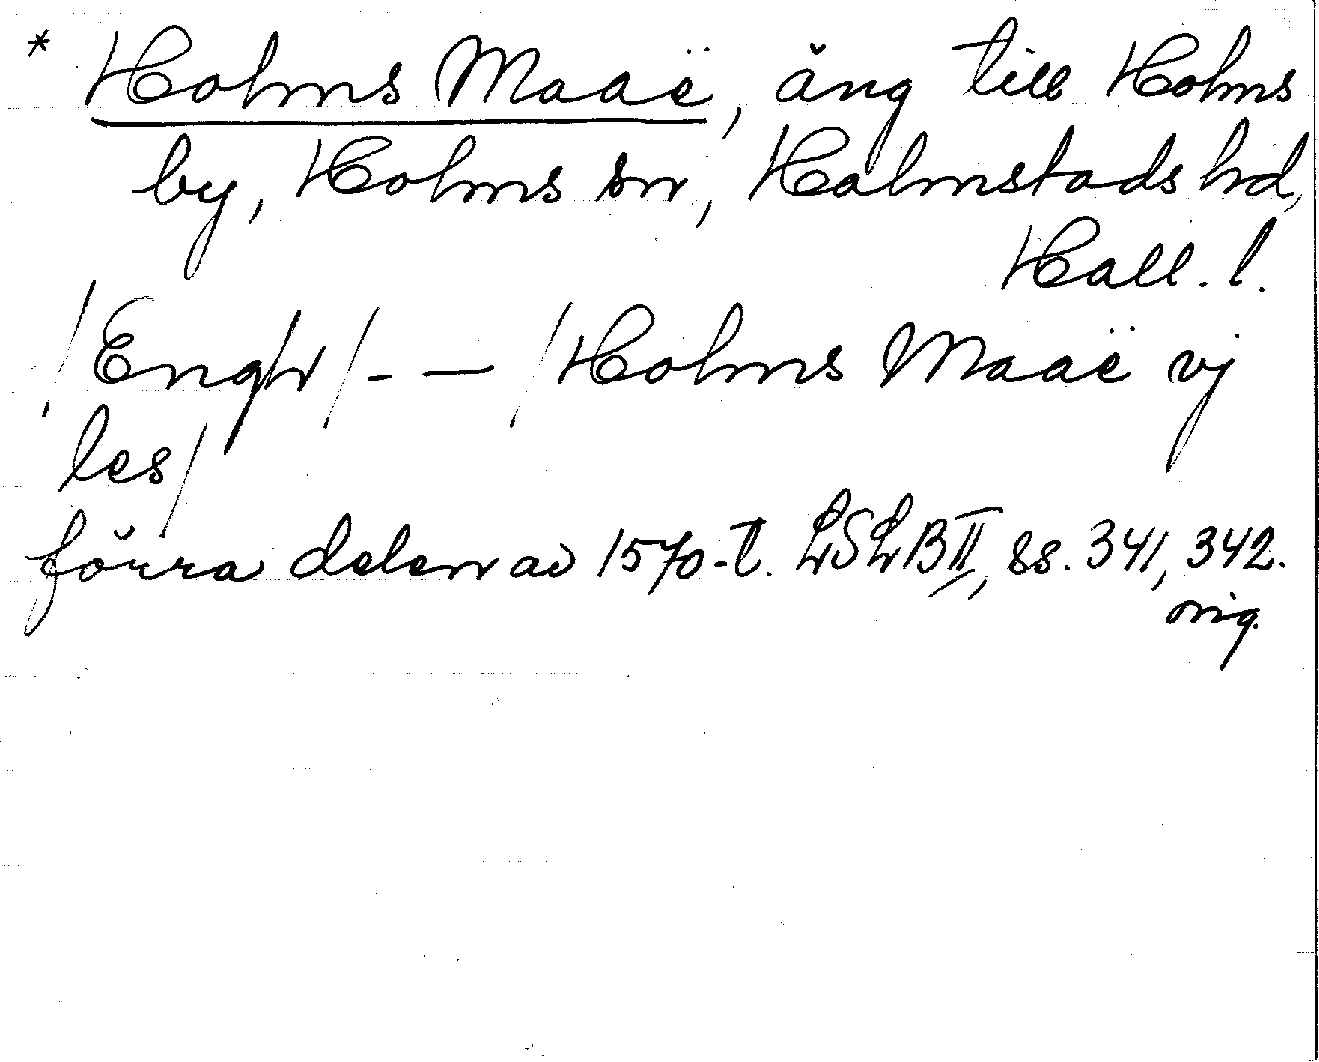 * Holms Maaë, äng till Holms
by, Holms sn, Halmstads hd,
Hall. l.
/Engh/ - — /Holms Maaë vj
les/
förra delen av 1570-t. LSLB II, ss. 341, 342.
orig.